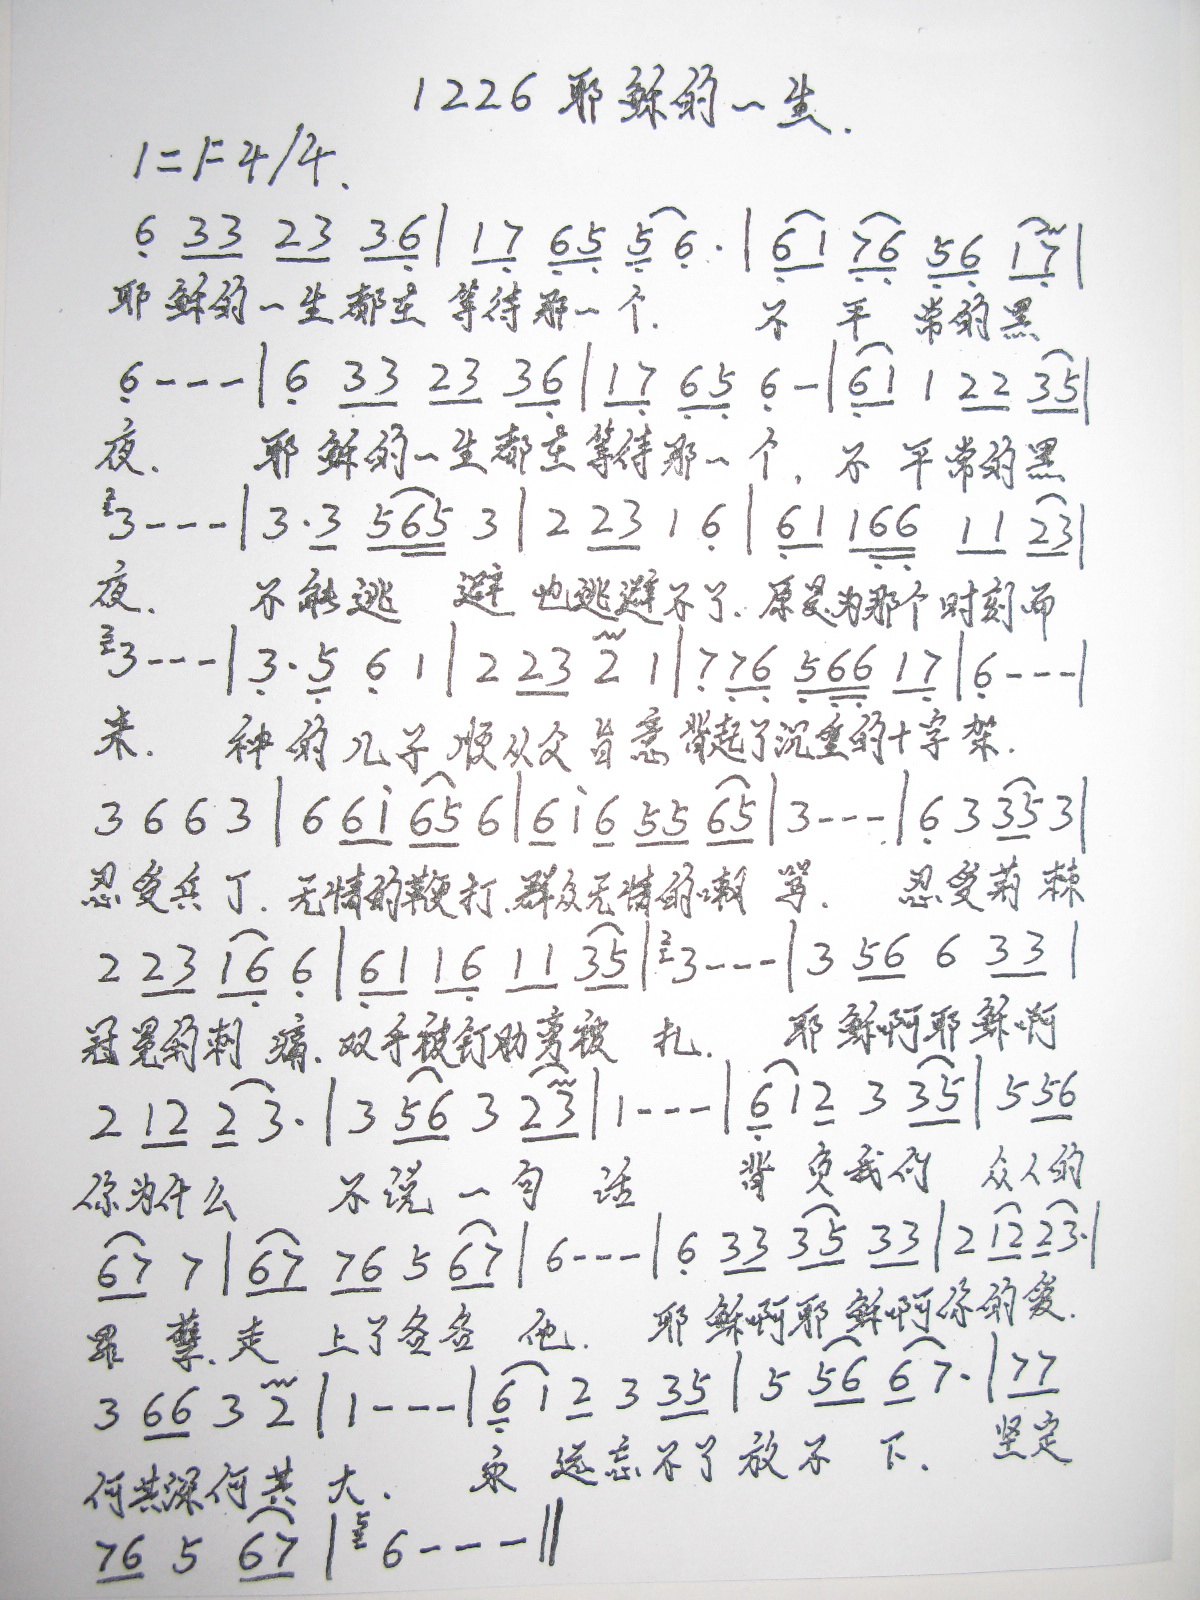 1226 耶稣的一生.
1=F 4/4.
6 33 23 36 | 17 65 5 6· | 61 76 56 17 |
耶稣的一生都在等待那一个. 不平常的黑
6 - - - | 6 33 23 36 | 17 65 6 - | 61 1 22 35 |
夜. 耶稣的一生都在等待那一个, 不平常的黑
2 3 - - - | 3·3 565 3 | 2 23 1 6 | 61 166 11 23 |
夜. 不能逃避也逃避不了. 原是为那个时刻而
2 3 - - - | 3·5 6 1 | 2 23 2 1 | 7 76 566 17 | 6 - - - |
来. 神的儿子顺从父旨意背起了沉重的十字架.
3 6 6 3 | 6 61 65 6 | 6 1 6 55 65 | 3 - - - | 6 3 35 3 |
忍受兵丁. 无情的鞭打. 群众无情的嘲骂. 忍受荆棘
2 23 16 6 | 61 16 11 35 | 2 3 - - - | 3 56 6 33 |
冠冕的刺痛. 双手被钉肋旁被扎. 耶稣啊耶稣啊
2 12 2 3· | 3 56 3 23 | 1 - - - | 6 1 2 3 35 | 5 56
你为什么 不说一句话 背负我们众人的
67 7 | 67 76 5 67 | 6 - - - | 6 33 35 33 | 2 12 23· |
罪孽. 走上了各各他. 耶稣啊耶稣啊你的爱.
3 66 3 2 | 1 - - - | 6 1 2 3 35 | 5 56 6 7· | 77
何其深何其大. 永远忘不了放不下. 坚定
76 5 67 | 5 6 - - - ||